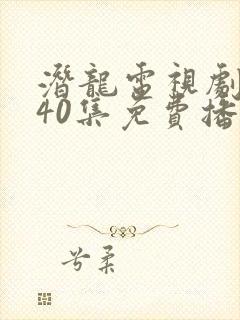 潛龍電視劇
40集免費播
兮柔